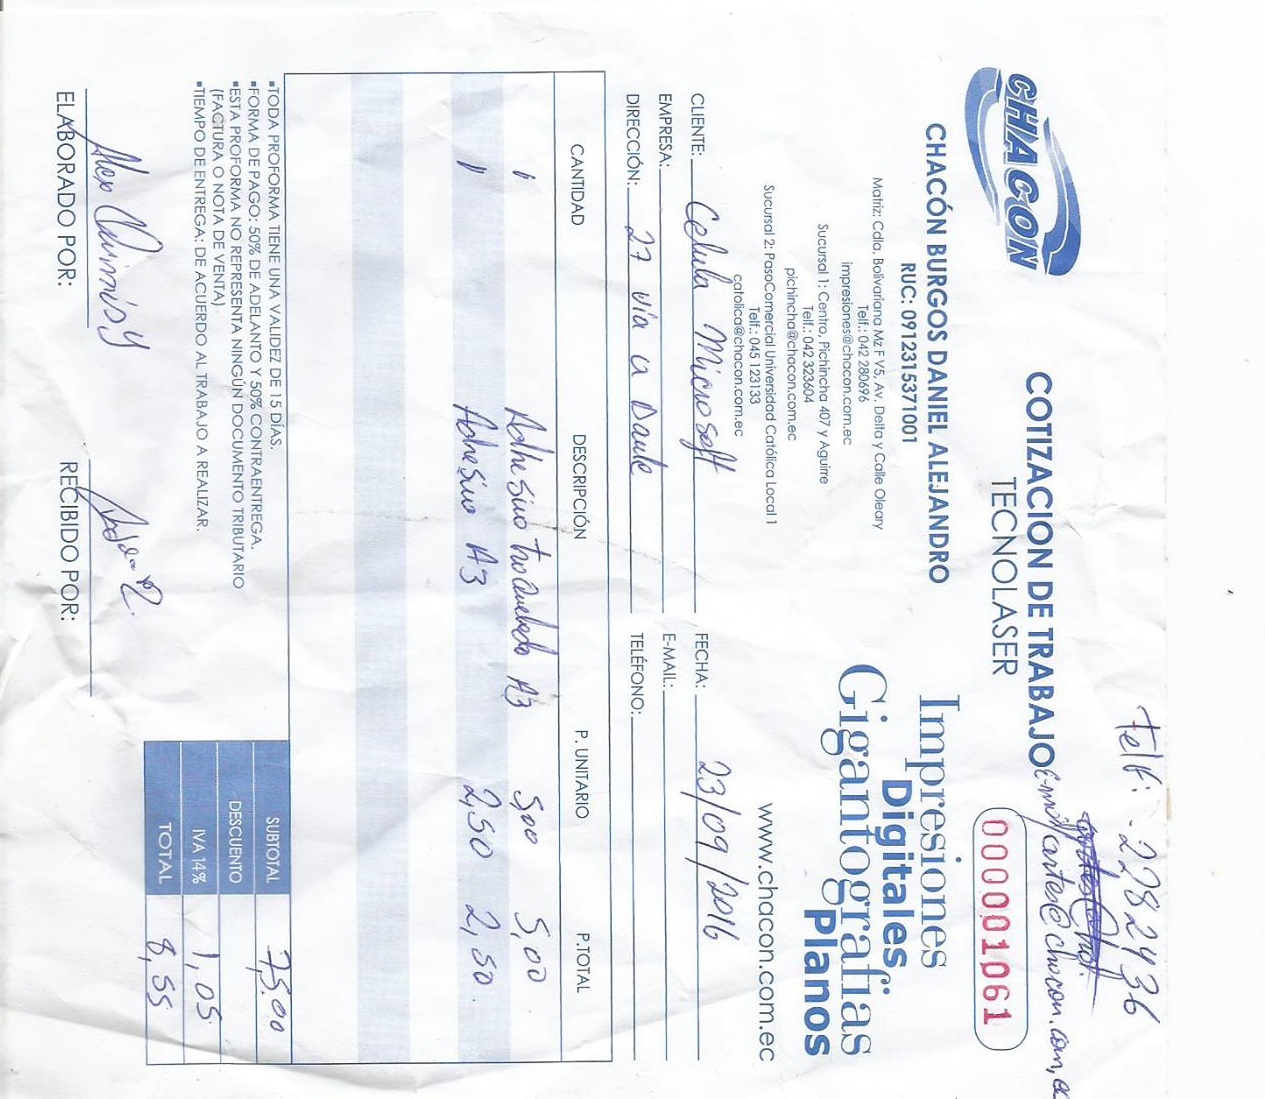 Telf: 2282436
E-mail artes@chacon.com.ec
CHACON
COTIZACION DE TRABAJO
TECNOLASER
000001061
CHACÓN BURGOS DANIEL ALEJANDRO
RUC: 0912315371001
Matriz: Cdla. Bolivariana Mz F V5, Av. Delta y Calle Oleary
Telf.: 042 280696
impresiones@chacon.com.ec
Sucursal 1: Centro, Pichincha 407 y Aguirre
Telf.: 042 323604
pichincha@chacon.com.ec
Sucursal 2: PasoComercial Universidad Católica Local 1
Telf.: 045 123133
catolica@chacon.com.ec
Impresiones
Digitales
Gigantografías
Planos
www.chacon.com.ec
CLIENTE: Celula Microsoft
FECHA: 23/09/2016
EMPRESA:
E-MAIL:
DIRECCIÓN: 27 vía a Daule
TELÉFONO:
CANTIDAD DESCRIPCIÓN P. UNITARIO P.TOTAL
1 Adhesivo troquelado A3 5,00 5,00
1 Adhesivo A3 2,50 2,50
▪TODA PROFORMA TIENE UNA VALIDEZ DE 15 DÍAS.
▪FORMA DE PAGO: 50% DE ADELANTO Y 50% CONTRAENTREGA.
▪ESTA PROFORMA NO REPRESENTA NINGÚN DOCUMENTO TRIBUTARIO
(FACTURA O NOTA DE VENTA)
▪TIEMPO DE ENTREGA: DE ACUERDO AL TRABAJO A REALIZAR.
SUBTOTAL 7,5.00
DESCUENTO
IVA 14% 1,05
TOTAL 8,55
Alex Quimís Y
ELABORADO POR:
RECIBIDO POR: